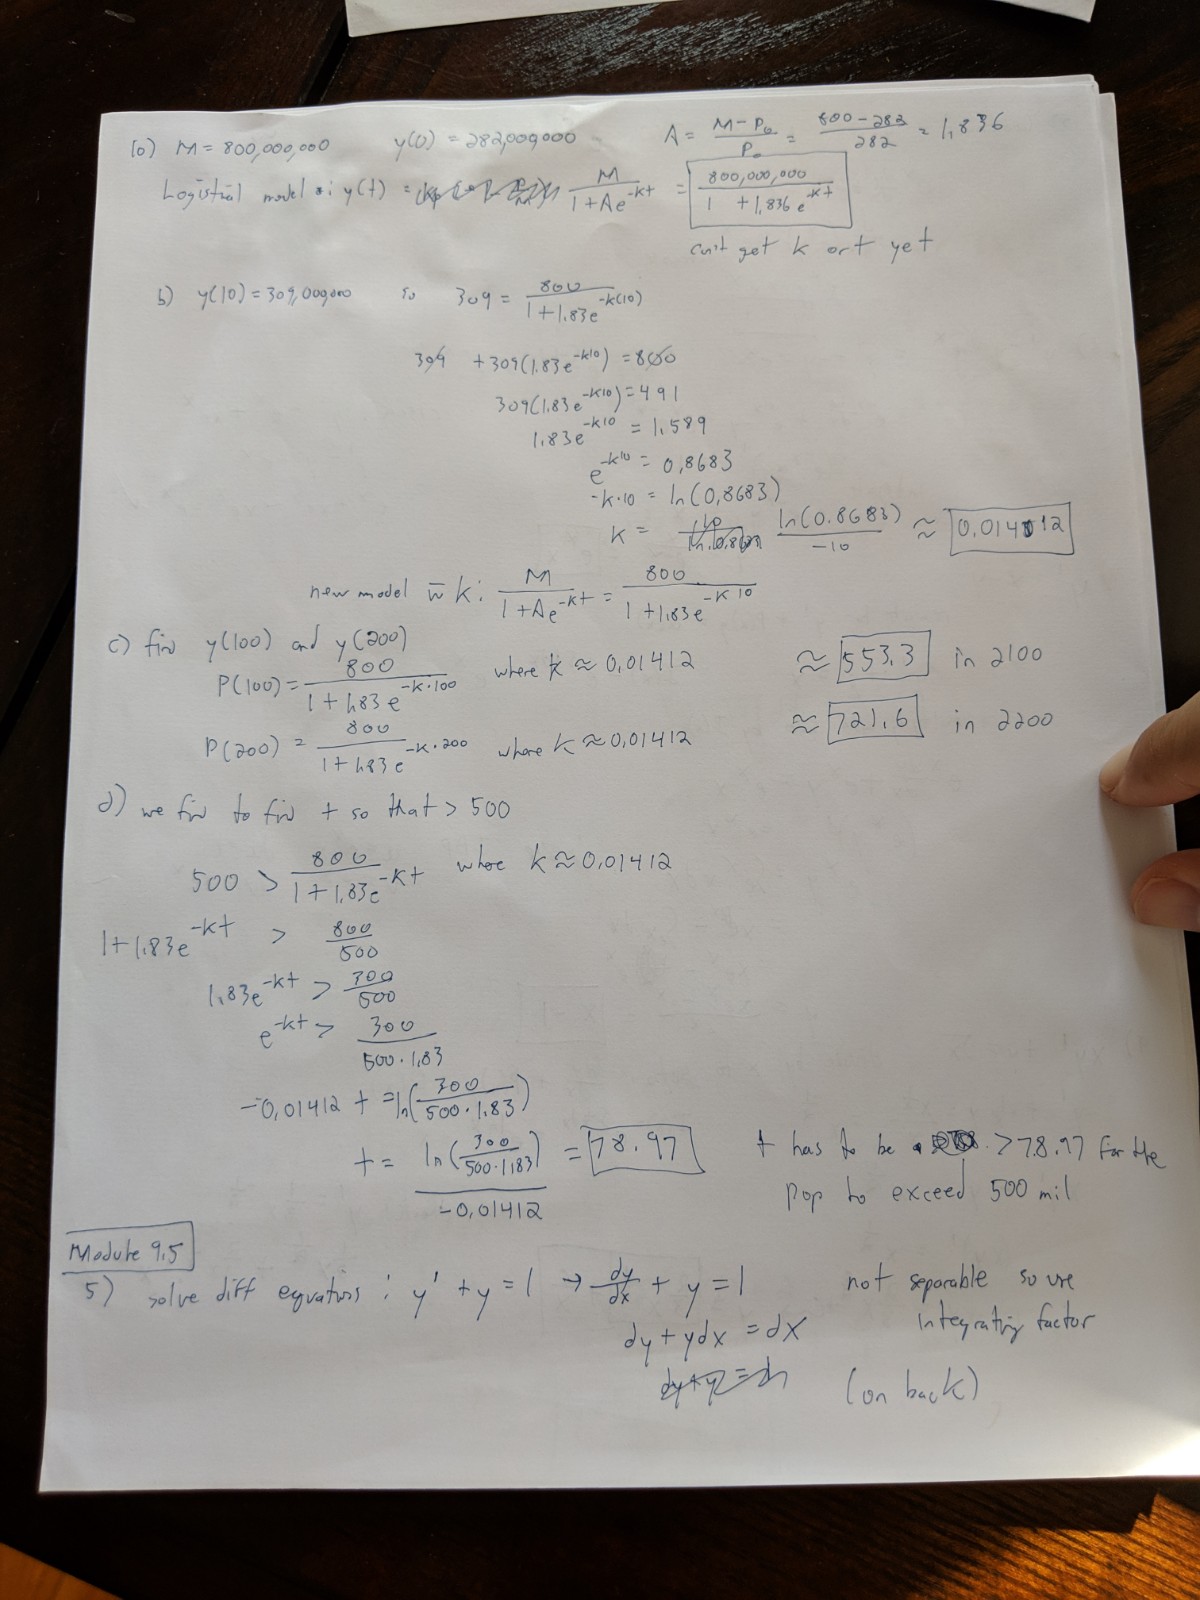 10) M = 800,000,000 y(0) = 282,000,000 A = (M - P₀)/P₀ = (800 - 282)/282 = 1,836
Logistical model : y(t) = M/(1 + Ae^(-kt)) = 800,000,000/(1 + 1,836 e^(-kt))
can't get k or t yet
b) y(10) = 309,000,000 so 309 = 800/(1 + 1.83e^(-k(10)))
309 + 309(1.83e^(-k10)) = 800
309(1.83e^(-k10)) = 491
1.83e^(-k10) = 1.589
e^(-k10) = 0,8683
-k·10 = ln(0,8683)
k = ln(0.8683)/-10 ≈ 0.01412
new model w̄ k: M/(1 + Ae^(-kt)) = 800/(1 + 1.83e^(-k10))
c) fin y(100) and y(200)
P(100) = 800/(1 + 1.83e^(-k·100)) where k ≈ 0.01412 ≈ 553.3 in 2100
P(200) = 800/(1 + 1.83e^(-k·200)) where k ≈ 0.01412 ≈ 721.6 in 2200
d) we fin to fin t so that > 500
500 > 800/(1 + 1.83e^(-kt)) where k ≈ 0.01412
1 + 1.83e^(-kt) > 800/500
1.83e^(-kt) > 300/500
e^(-kt) > 300/(500·1.83)
-0,01412 t = ln(300/(500·1.83))
t = ln(300/(500·1.83))/-0.01412 = 78.97 t has to be > 78.97 for the
pop to exceed 500 mil
Module 9.5
5) solve diff equations : y' + y = 1 → dy/dx + y = 1 not separable so use
dy + ydx = dx integrating factor
(on back)